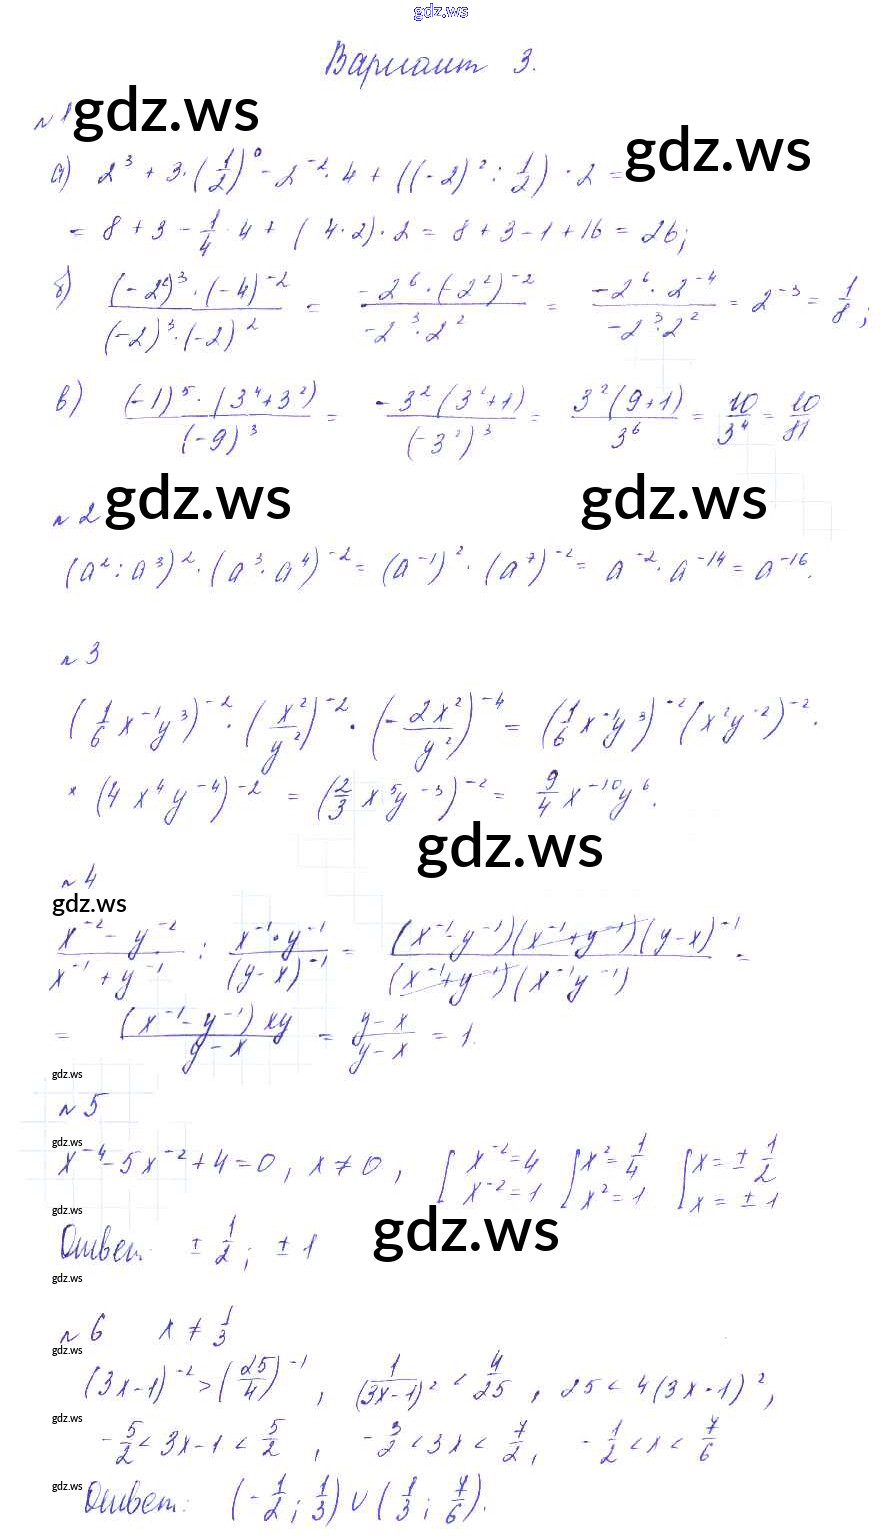 gdz.ws
Вариант 3.
№1 gdz.ws
а) 2³ + 3·(1/2)⁰ - 2⁻²·4 + ((-2)² : 1/2)·2 = gdz.ws
= 8 + 3 - 1/4·4 + (4·2)·2 = 8 + 3 - 1 + 16 = 26;
б) ((-2²)³·(-4)⁻²)/((-2)³·(-2)²) = (-2⁶·(-2²)⁻²)/(-2³·2²) = (-2⁶·2⁻⁴)/(-2³·2²) = 2⁻³ = 1/8;
в) ((-1)⁵·(3⁴+3²))/((-9)³) = (-3²(3²+1))/((-3²)³) = (3²(9+1))/3⁶ = 10/3⁴ = 10/81
№2 gdz.ws gdz.ws
(a²:a³)²·(a³·a⁴)⁻² = (a⁻¹)²·(a⁷)⁻² = a⁻²·a⁻¹⁴ = a⁻¹⁶.
№3
(1/6 x⁻¹y³)⁻²·(x²/y²)⁻²·(-2x²/y²)⁻⁴ = (1/6 x⁻¹y³)⁻²(x²y⁻²)⁻²·
×(4x⁴y⁻⁴)⁻² = (2/3 x⁵y⁻³)⁻² = 9/4 x⁻¹⁰y⁶.
gdz.ws
№4
gdz.ws
(x⁻²-y⁻²)/(x⁻¹+y⁻¹) : (x⁻¹·y⁻¹)/((y-x)⁻¹) = ((x⁻¹-y⁻¹)(x⁻¹+y⁻¹)(y-x)⁻¹)/((x⁻¹+y⁻¹)(x⁻¹y⁻¹)) =
= ((x⁻¹-y⁻¹)xy)/(y-x) = (y-x)/(y-x) = 1.
gdz.ws
№5
gdz.ws
x⁻⁴-5x⁻²+4=0, x≠0, [x⁻²=4 x⁻²=1 [x²=1/4 x²=1 [x=±1/2 x=±1
gdz.ws
gdz.ws
Ответ: ±1/2; ±1
gdz.ws
№6 x≠1/3
gdz.ws
(3x-1)⁻² > (25/4)⁻¹, 1/(3x-1)² < 4/25, 25 < 4(3x-1)²,
gdz.ws
-5/2 < 3x-1 < 5/2, -3/2 < 3x < 7/2, -1/2 < x < 7/6
gdz.ws
Ответ: (-1/2; 1/3) ∪ (1/3; 7/6).